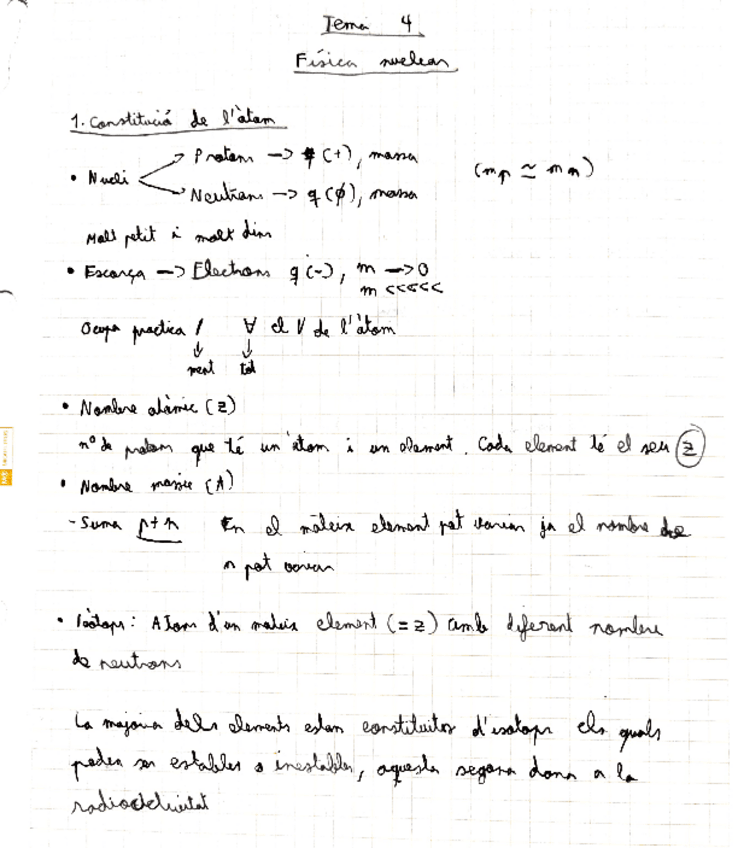 Tema 4
Física nuclear
1. Constitució de l'àtom
• Nucli
Protons -> q (+), massa
(mp ≃ mn)
Neutrons -> q (ϕ), massa
Molt petit i molt dins
• Escorça -> Electrons q (-), m -> 0
m <<<<<
Ocupa practica / ∀ el V de l'àtom
ment tot
• Nombre atòmic (z)
nº de protons que té un àtom i un element. Cada element té el seu z
• Nombre massic (A)
- Suma p+n En el mateix element pot variar ja el nombre de
n pot variar
• Isòtops: Atom d'un mateix element (= z) amb diferent nombre
de neutrons
La majoria dels elements estan constituits d'isotops els quals
poden ser estables o inestables, aquesta segona dona a la
radioactivitat